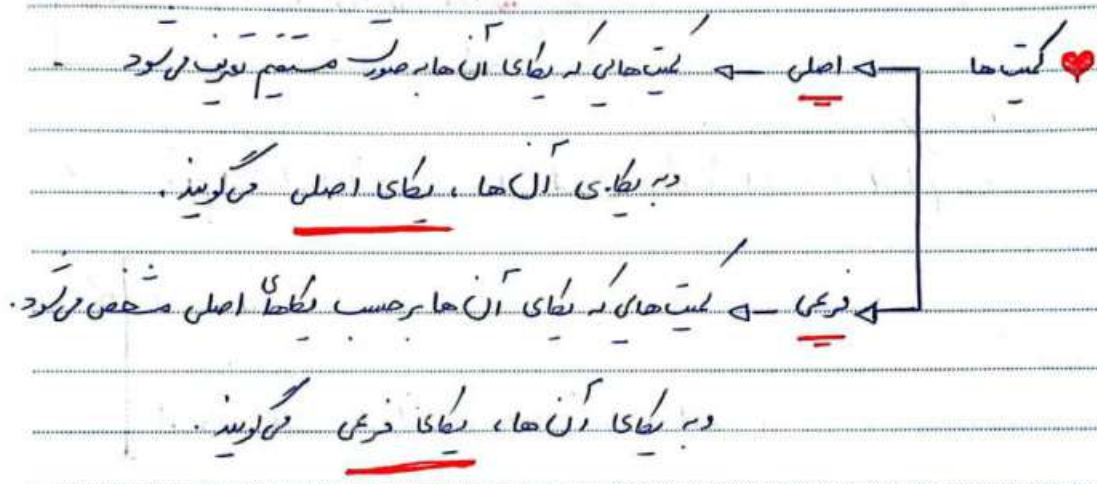 کمیت ها اصلی کمیت هایی که یکای آن ها به صورت مستقیم تعریف می شود .
و به یکای آن ها ، یکای اصلی می گویند .
فرعی کمیت هایی که یکای آن ها برحسب یکاهای اصلی مشخص می شود .
و به یکای آن ها ، یکای فرعی می گویند .